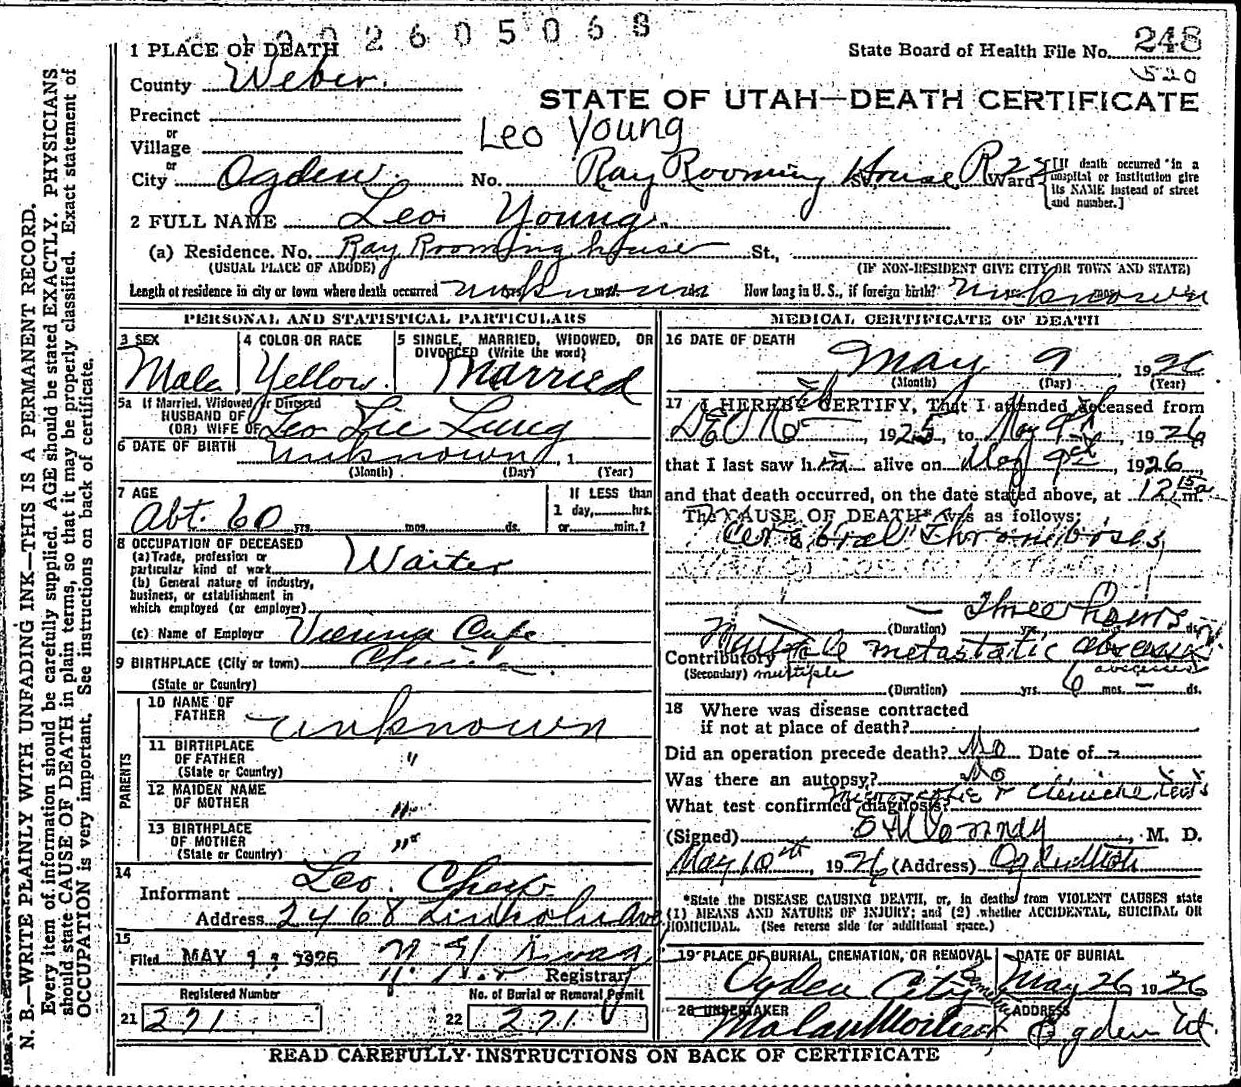 2605068
1 PLACE OF DEATH
State Board of Health File No. 248
520
County Weber.
STATE OF UTAH—DEATH CERTIFICATE
Precinct
or
Village
Leo Young
or
City Ogden. No. Ray Rooming House R 22 Ward
[If death occurred in a hospital or institution give its NAME instead of street and number.]
2 FULL NAME Leo Young.
(a) Residence. No. Ray Rooming house St.,
(USUAL PLACE OF ABODE) (IF NON-RESIDENT GIVE CITY OR TOWN AND STATE)
Length of residence in city or town where death occurred unknown How long in U.S., if foreign birth? unknown
PERSONAL AND STATISTICAL PARTICULARS
3 SEX
Male
4 COLOR OR RACE
Yellow.
5 SINGLE, MARRIED, WIDOWED, OR
DIVORCED (Write the word)
Married
5a If Married, Widowed or Divorced
HUSBAND OF
(OR) WIFE OF Leo Lie Lung
6 DATE OF BIRTH unknown, 1
(Month) (Day) (Year)
7 AGE
Abt. 60 yrs. mos. ds.
If LESS than
1 day, hrs.
or min.?
8 OCCUPATION OF DECEASED
(a) Trade, profession or
particular kind of work Waiter
(b) General nature of industry,
business, or establishment in
which employed (or employer)
(c) Name of Employer Vienna Cafe
9 BIRTHPLACE (City or town) China
(State or Country)
PARENTS
10 NAME OF
FATHER unknown
11 BIRTHPLACE
OF FATHER "
(State or Country)
12 MAIDEN NAME
OF MOTHER "
13 BIRTHPLACE
OF MOTHER "
(State or Country)
14
Informant Leo
Address 2468 Lincoln Ave
15
Filed MAY 1926
Registrar
Registered Number
21 271
No. of Burial or Removal Permit
22 271
MEDICAL CERTIFICATE OF DEATH
16 DATE OF DEATH
May 9 1926
(Month) (Day) (Year)
17 I HEREBY CERTIFY, That I attended deceased from
Dec 1925, to May 9, 1926
that I last saw him alive on May 9, 1926,
and that death occurred, on the date stated above, at 12 15 a m.
The CAUSE OF DEATH* was as follows:
Cerebral Thromboses
Three hours
(Duration) yrs. mos. ds.
Contributory Multiple metastatic abscesses
(Secondary) multiple abscesses
(Duration) yrs. 6 mos. — ds.
18 Where was disease contracted
if not at place of death?
Did an operation precede death? No Date of -
Was there an autopsy? No
What test confirmed diagnosis? Microscopic & Clinical tests
(Signed) , M. D.
May 10th, 1926 (Address) Ogden Utah
*State the DISEASE CAUSING DEATH, or, in deaths from VIOLENT CAUSES state
(1) MEANS AND NATURE OF INJURY; and (2) whether ACCIDENTAL, SUICIDAL OR
HOMICIDAL. (See reverse side for additional space.)
19 PLACE OF BURIAL, CREMATION, OR REMOVAL
Ogden City Cemetery
DATE OF BURIAL
May 26, 1926
20 UNDERTAKER
ADDRESS
Ogden Ut.
READ CAREFULLY INSTRUCTIONS ON BACK OF CERTIFICATE
N. B.—WRITE PLAINLY WITH UNFADING INK—THIS IS A PERMANENT RECORD.
Every item of information should be carefully supplied. AGE should be stated EXACTLY. PHYSICIANS
should state CAUSE OF DEATH in plain terms, so that it may be properly classified. Exact statement of
OCCUPATION is very important. See instructions on back of certificate.